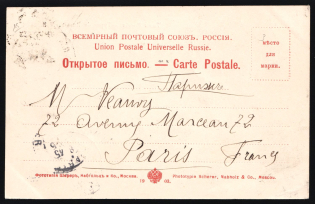 ВСЕМІРНЫЙ ПОЧТОВЫЙ СОЮЗЪ. РОССІЯ.
Union Postale Universelle Russie.
Открытое письмо. — Carte Postale.
Мѣсто
для
марки.
Парижъ
M
72 Avenue Marceau 72
Paris
Фототипія Шереръ, Набгольцъ и Ко., Москва.
Phototypie Scherer, Nabholz & Co., Moscou.